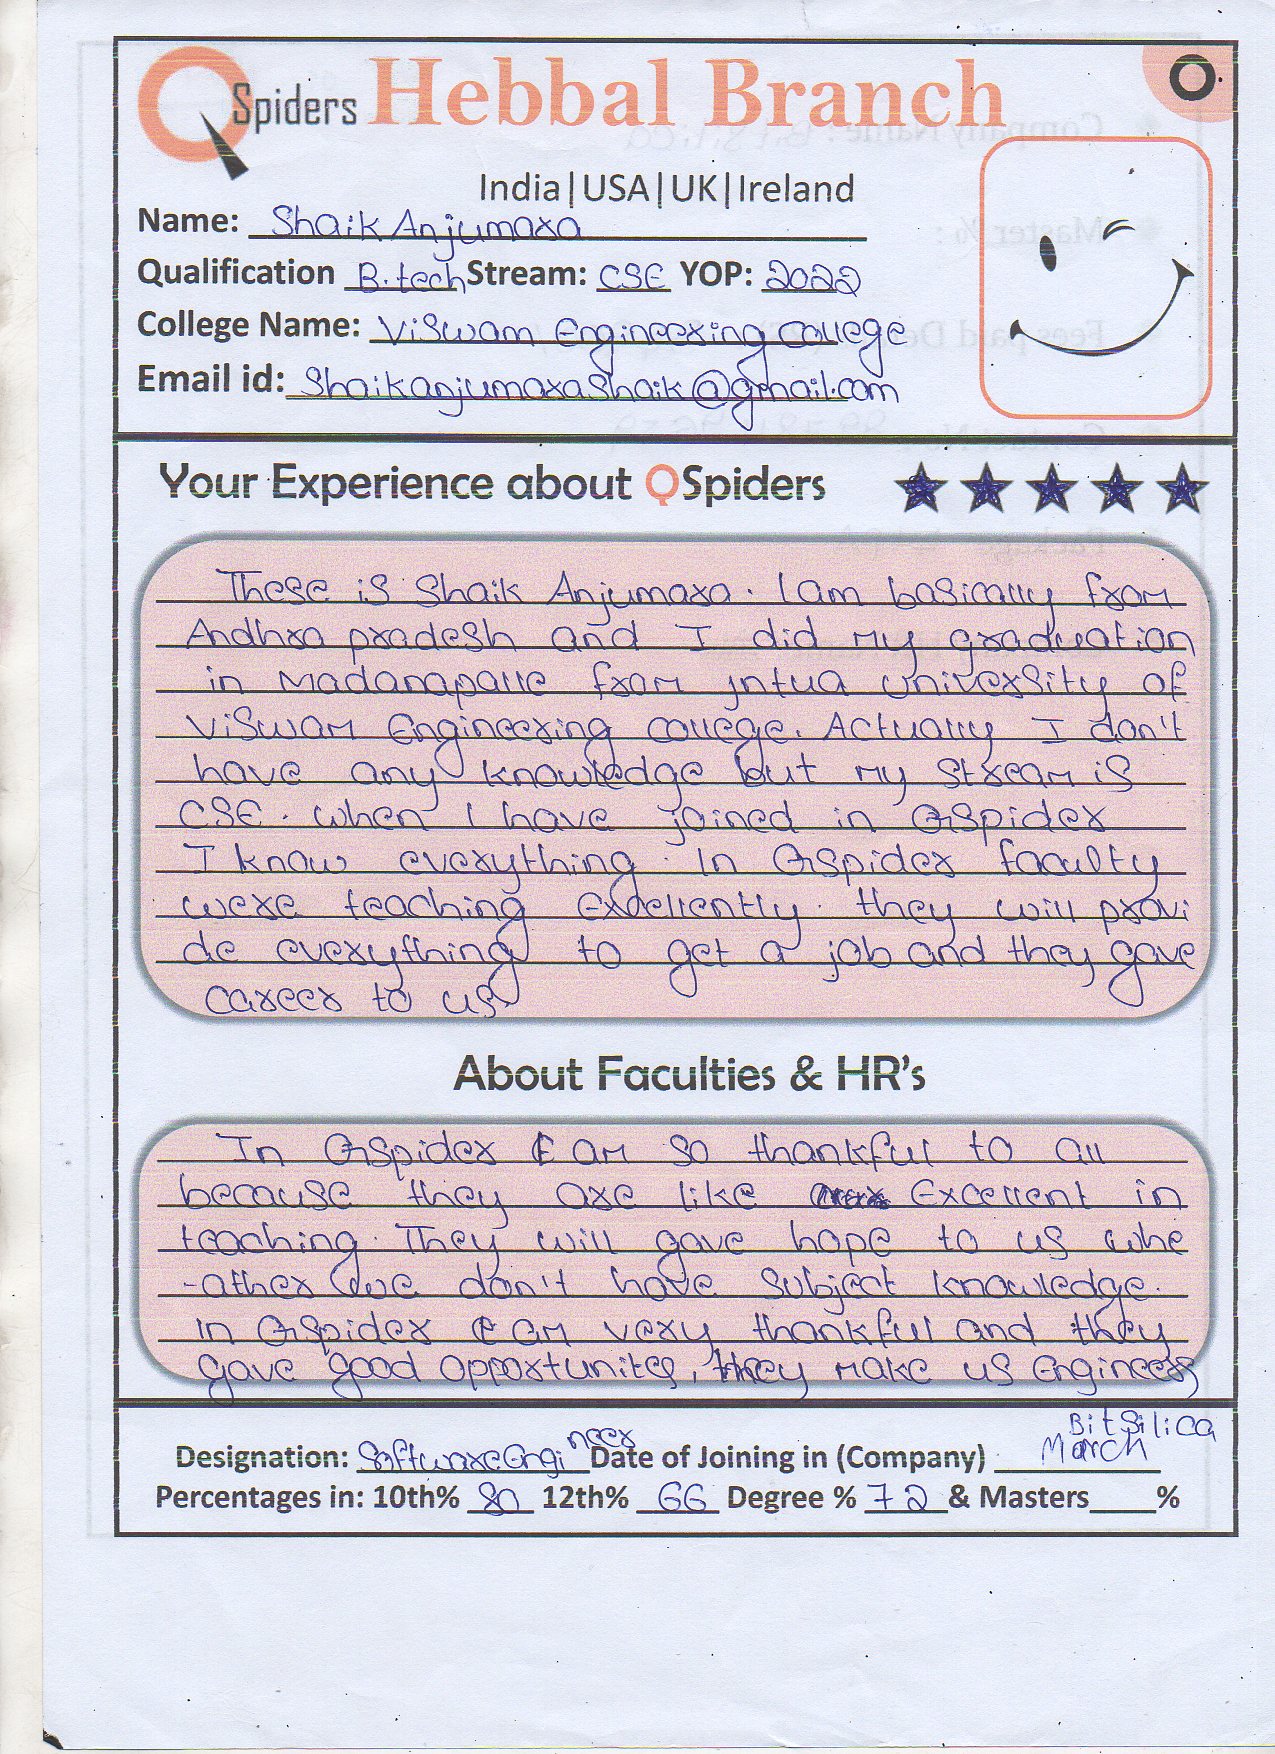 QSpiders Hebbal Branch
India|USA|UK|Ireland
Name: Shaik Anjumara
Qualification B.tech Stream: CSE YOP: 2022
College Name: Viswam Engineering college
Email id: Shaikanjumarashaik@gmail.com
Your Experience about QSpiders
These is Shaik Anjumara. I am basically from
Andhra pradesh and I did my graduation
in Madanapalle from jntua University of
Viswam Engineering college. Actually I don't
have any knowledge but my stream is
CSE. when I have joined in Qspider
I know everything. In Qspider faculty
were teaching Excellently. they will provi
de everything to get a job and they gave
career to us
About Faculties & HR's
In Qspider I am so thankful to all
because they are like Excellent in
teaching. They will gave hope to us whe
-ather we don't have subject knowledge.
In Qspider I am very thankful and they
gave good opportunites, they make us Engineers
Designation: Software Engineer Date of Joining in (Company) BitSilica March
Percentages in: 10th% 80 12th% 66 Degree % 72 & Masters____%